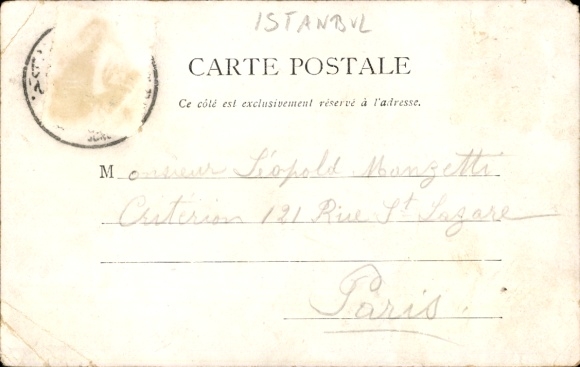 ISTANBUL
CARTE POSTALE
Ce côté est exclusivement réservé à l'adresse.
Monsieur Léopold Manzetti
Criterion 121 Rue St Lazare
Paris.